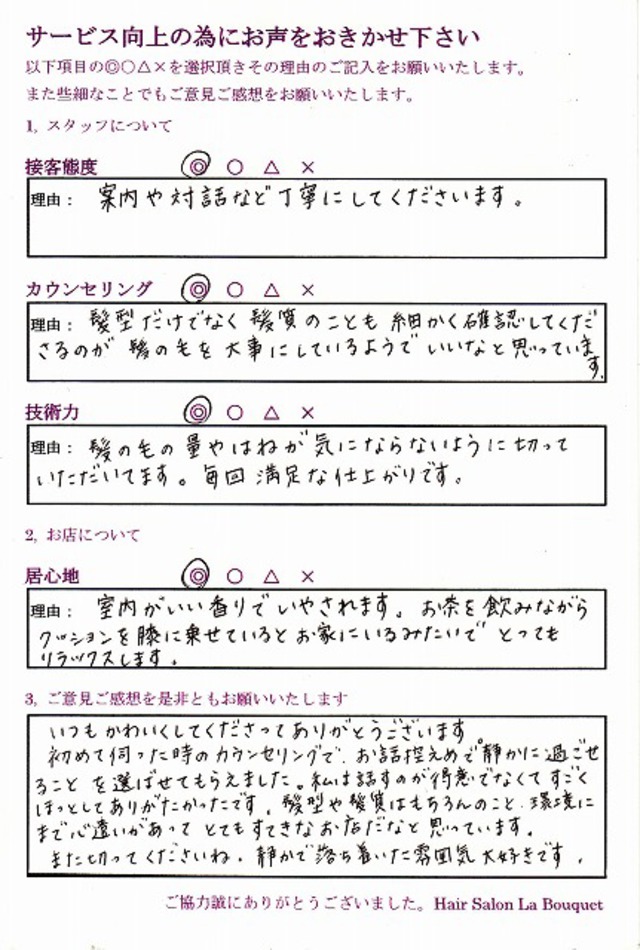 サービス向上の為にお声をおきかせ下さい
以下項目の◎○△×を選択頂きその理由のご記入をお願いいたします。
また些細なことでもご意見ご感想をお願いいたします。
1, スタッフについて
接客態度 ◎ ○ △ ×
理由： 案内や対話など丁寧にしてくださいます。
カウンセリング ◎ ○ △ ×
理由： 髪型だけでなく髪質のことも細かく確認してくだ
さるのが髪の毛を大事にしているようでいいなと思っていま
す。
技術力 ◎ ○ △ ×
理由： 髪の毛の量やはねが気にならないように切って
いただいてます。毎回満足な仕上がりです。
2, お店について
居心地 ◎ ○ △ ×
理由： 室内がいい香りでいやされます。お茶を飲みながら
クッションを膝に乗せているとお家にいるみたいで とっても
リラックスします。
3, ご意見ご感想を是非ともお願いいたします
いつもかわいくしてくださってありがとうございます。
初めて伺った時のカウンセリングで、お話控えめで静かに過ごせ
ることを選ばせてもらえました。私は話すのが得意でなくてすごく
ほっとしてありがたかったです。髪型や髪質はもちろんのこと、環境に
まで心遣いがあって とてもすてきなお店だなと思っています。
また切ってくださいね。静かで落ち着いた雰囲気大好きです。
ご協力誠にありがとうございました。Hair Salon La Bouquet